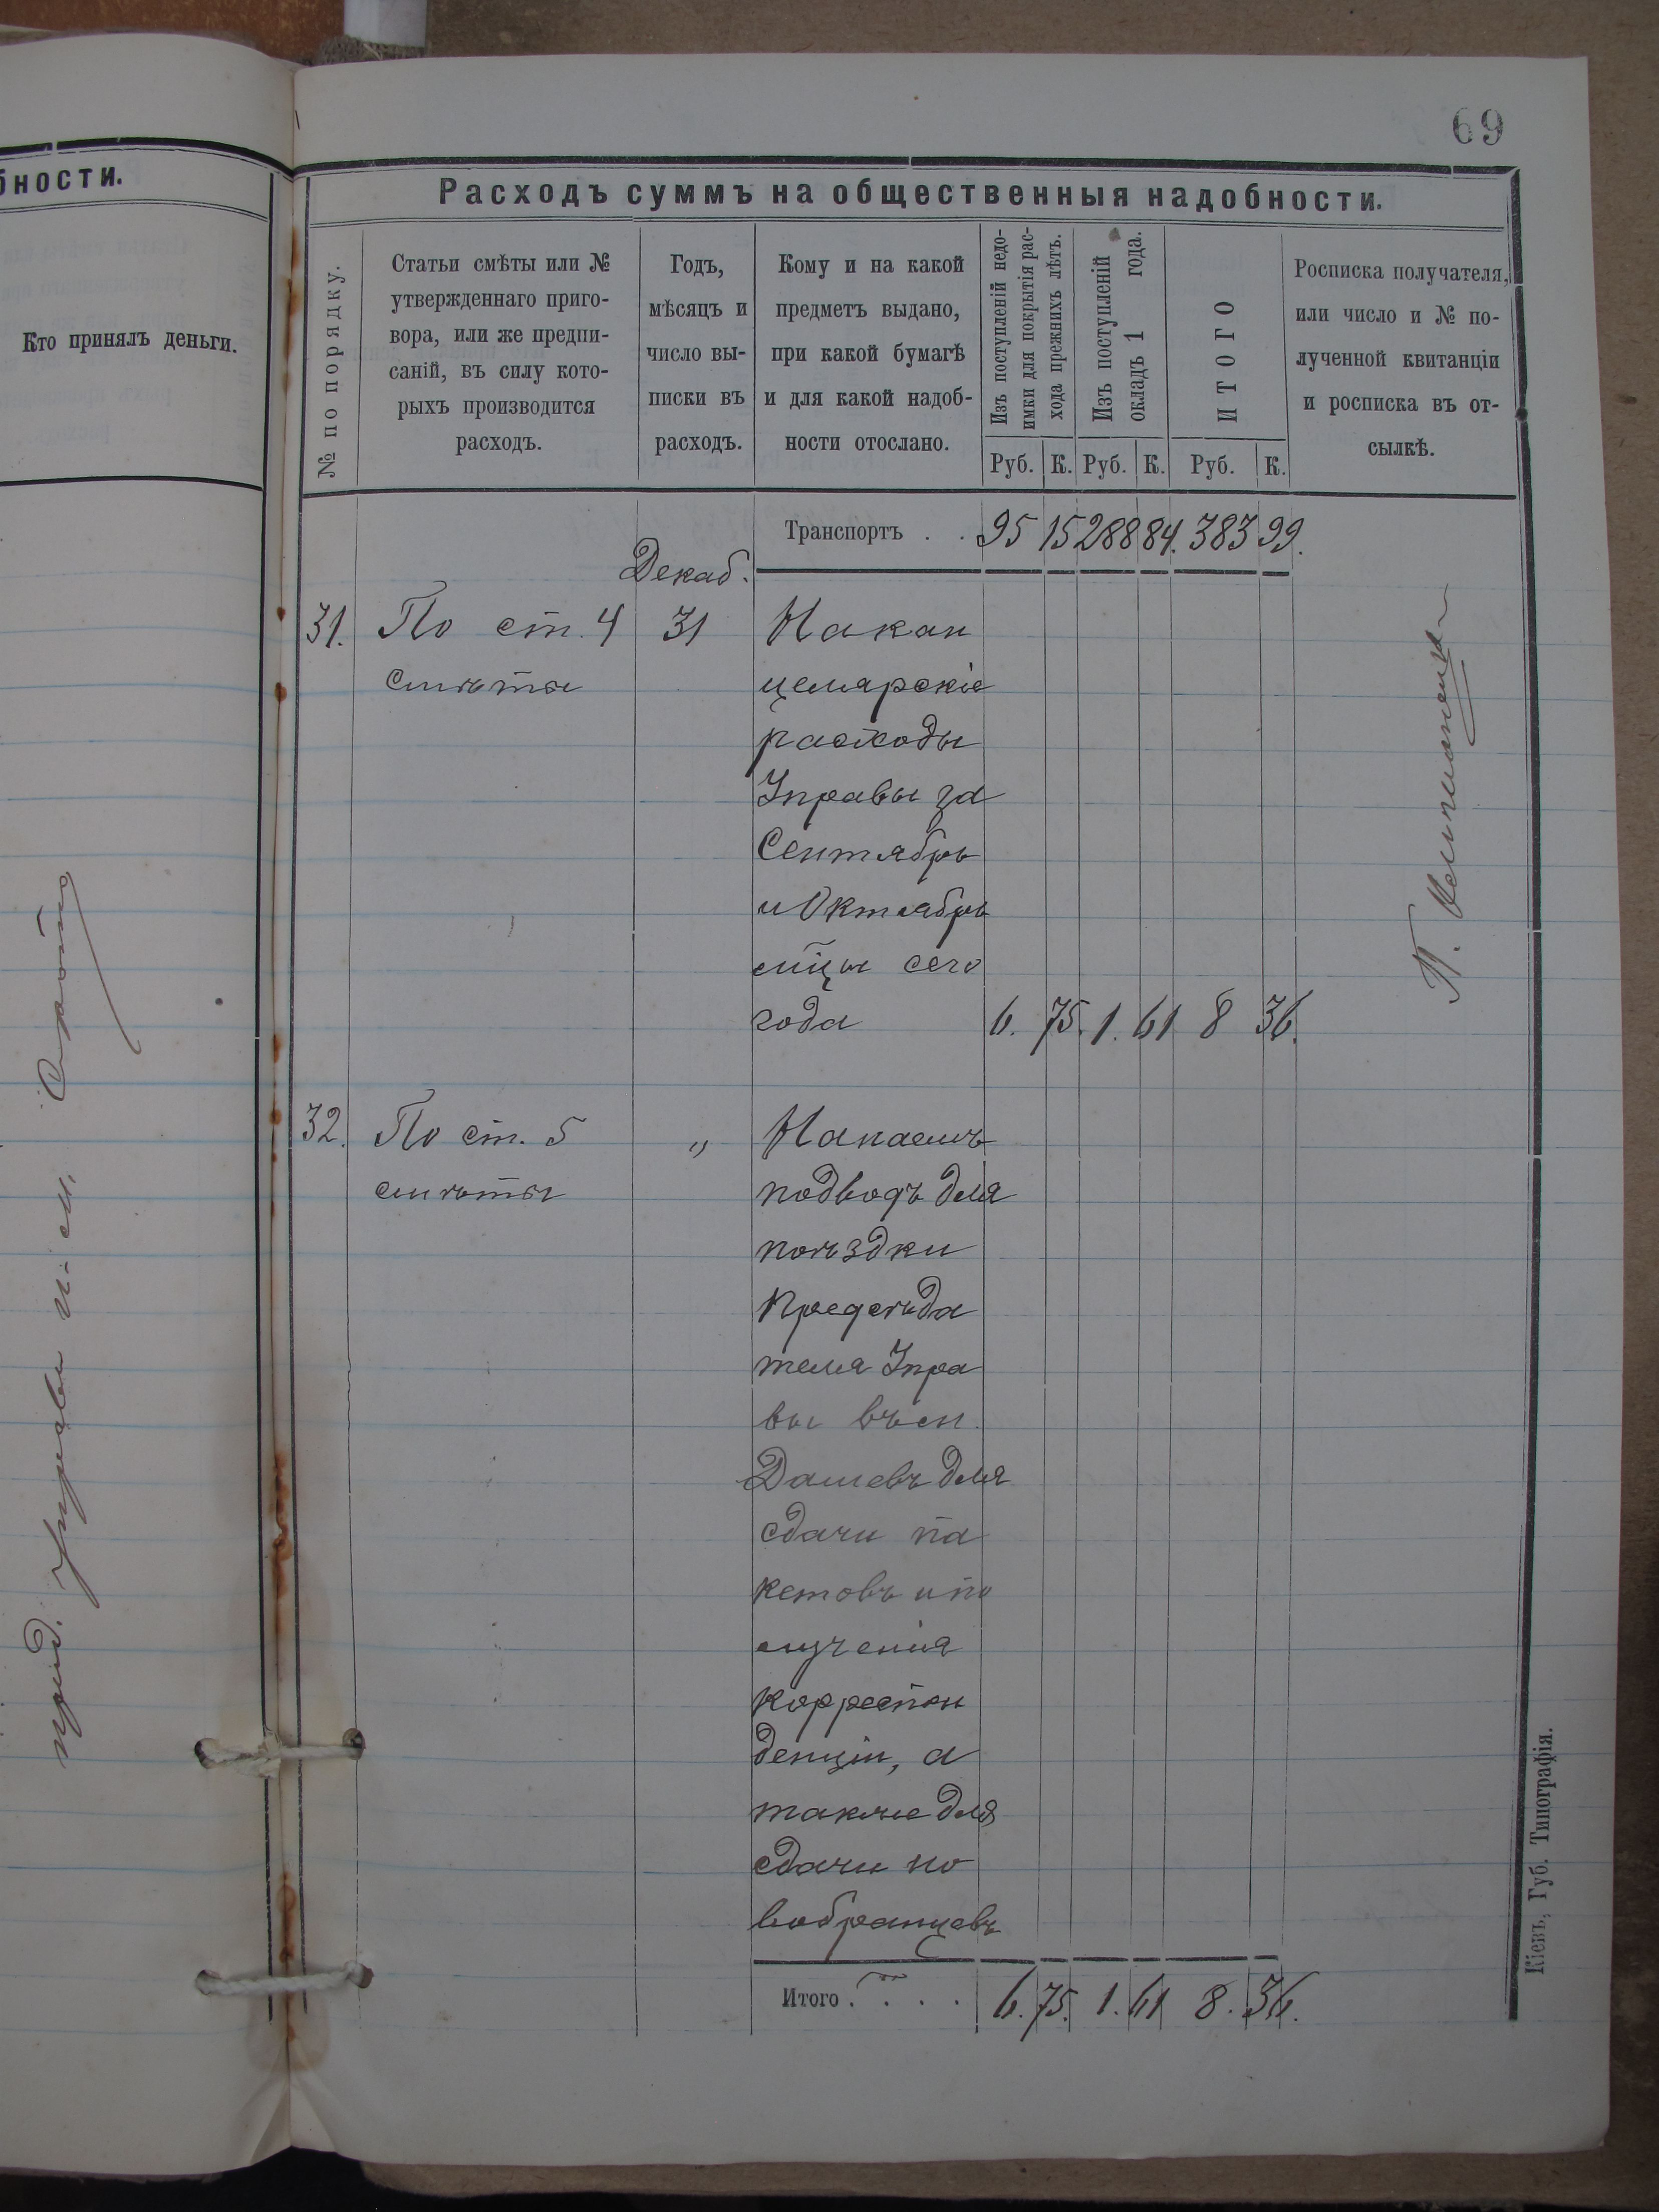 69
бности.
Кто принялъ деньги.
пред. Управы
Расходъ суммъ на общественныя надобности.
№ по порядку.
Статьи смѣты или №
утвержденнаго приго-
вора, или же предпи-
саній, въ силу кото-
рыхъ производится
расходъ.
Годъ,
мѣсяцъ и
число вы-
писки въ
расходъ.
Кому и на какой
предметъ выдано,
при какой бумагѣ
и для какой надоб-
ности отослано.
Изъ поступленій недо-
имки для покрытія рас-
хода прежнихъ лѣтъ.
Изъ поступленій
окладъ 1 года.
ИТОГО
Росписка получателя,
или число и № по-
лученной квитанціи
и росписка въ от-
сылкѣ.
Руб. К. Руб. К. Руб. К.
Транспортъ . . 95 15 288 84. 383 99.
Декаб.
31. По ст. 4 31 На кан
смѣты целярскіе
расходы
Управы за
Сентябрь
и Октябрь
мцы сего
года 6. 75. 1. 61 8 36.
32. По ст. 5 „ На наемъ
смѣты подводъ для
поѣздки
Предсѣда
теля Упра
вы въ м.
Дашевъ для
сдачи па
кетовъ и по
лученія
корреспон
денціи, а
также для
сдачи но
вобранцевъ
Итого . . . . 6. 75. 1. 61 8. 36.
Кіевъ, Губ. Типографія.